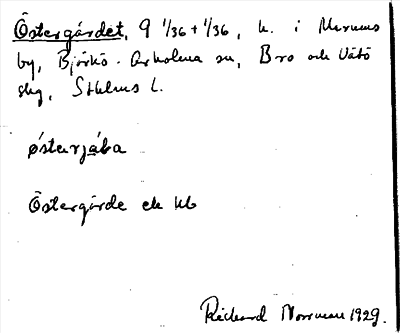 Östergärdet, 9 1/36 + 1/36, h. i Marums
by, Björkö-Arholma sn, Bro och Vätö
skg, Sthlms l.
østarjába
Östergärde ek kb
Richard Norrman 1929.